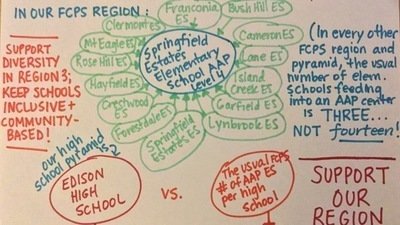 IN OUR FCPS REGION:
Franconia
ES
Bush Hill ES
Clermont ES
Cameron ES
Mt Eagle ES
Lane ES
Rose Hill ES
Island
Creek ES
Hayfield ES
Garfield ES
Crestwood
ES
Lynbrook ES
Forestdale ES
Springfield
Estates ES
Springfield
Estates
Elementary
School AAP
Level 4
SUPPORT
DIVERSITY
IN REGION 3;
KEEP SCHOOLS
INCLUSIVE +
COMMUNITY-
BASED!
(In every other
FCPS region and
pyramid, the usual
number of elem.
schools feeding
into an AAP center
is THREE...
NOT fourteen!)
our high
school pyramid
is 2
EDISON
HIGH
SCHOOL
VS.
The usual FCPS
# of AAP ES
per high
school
SUPPORT
OUR
REGION